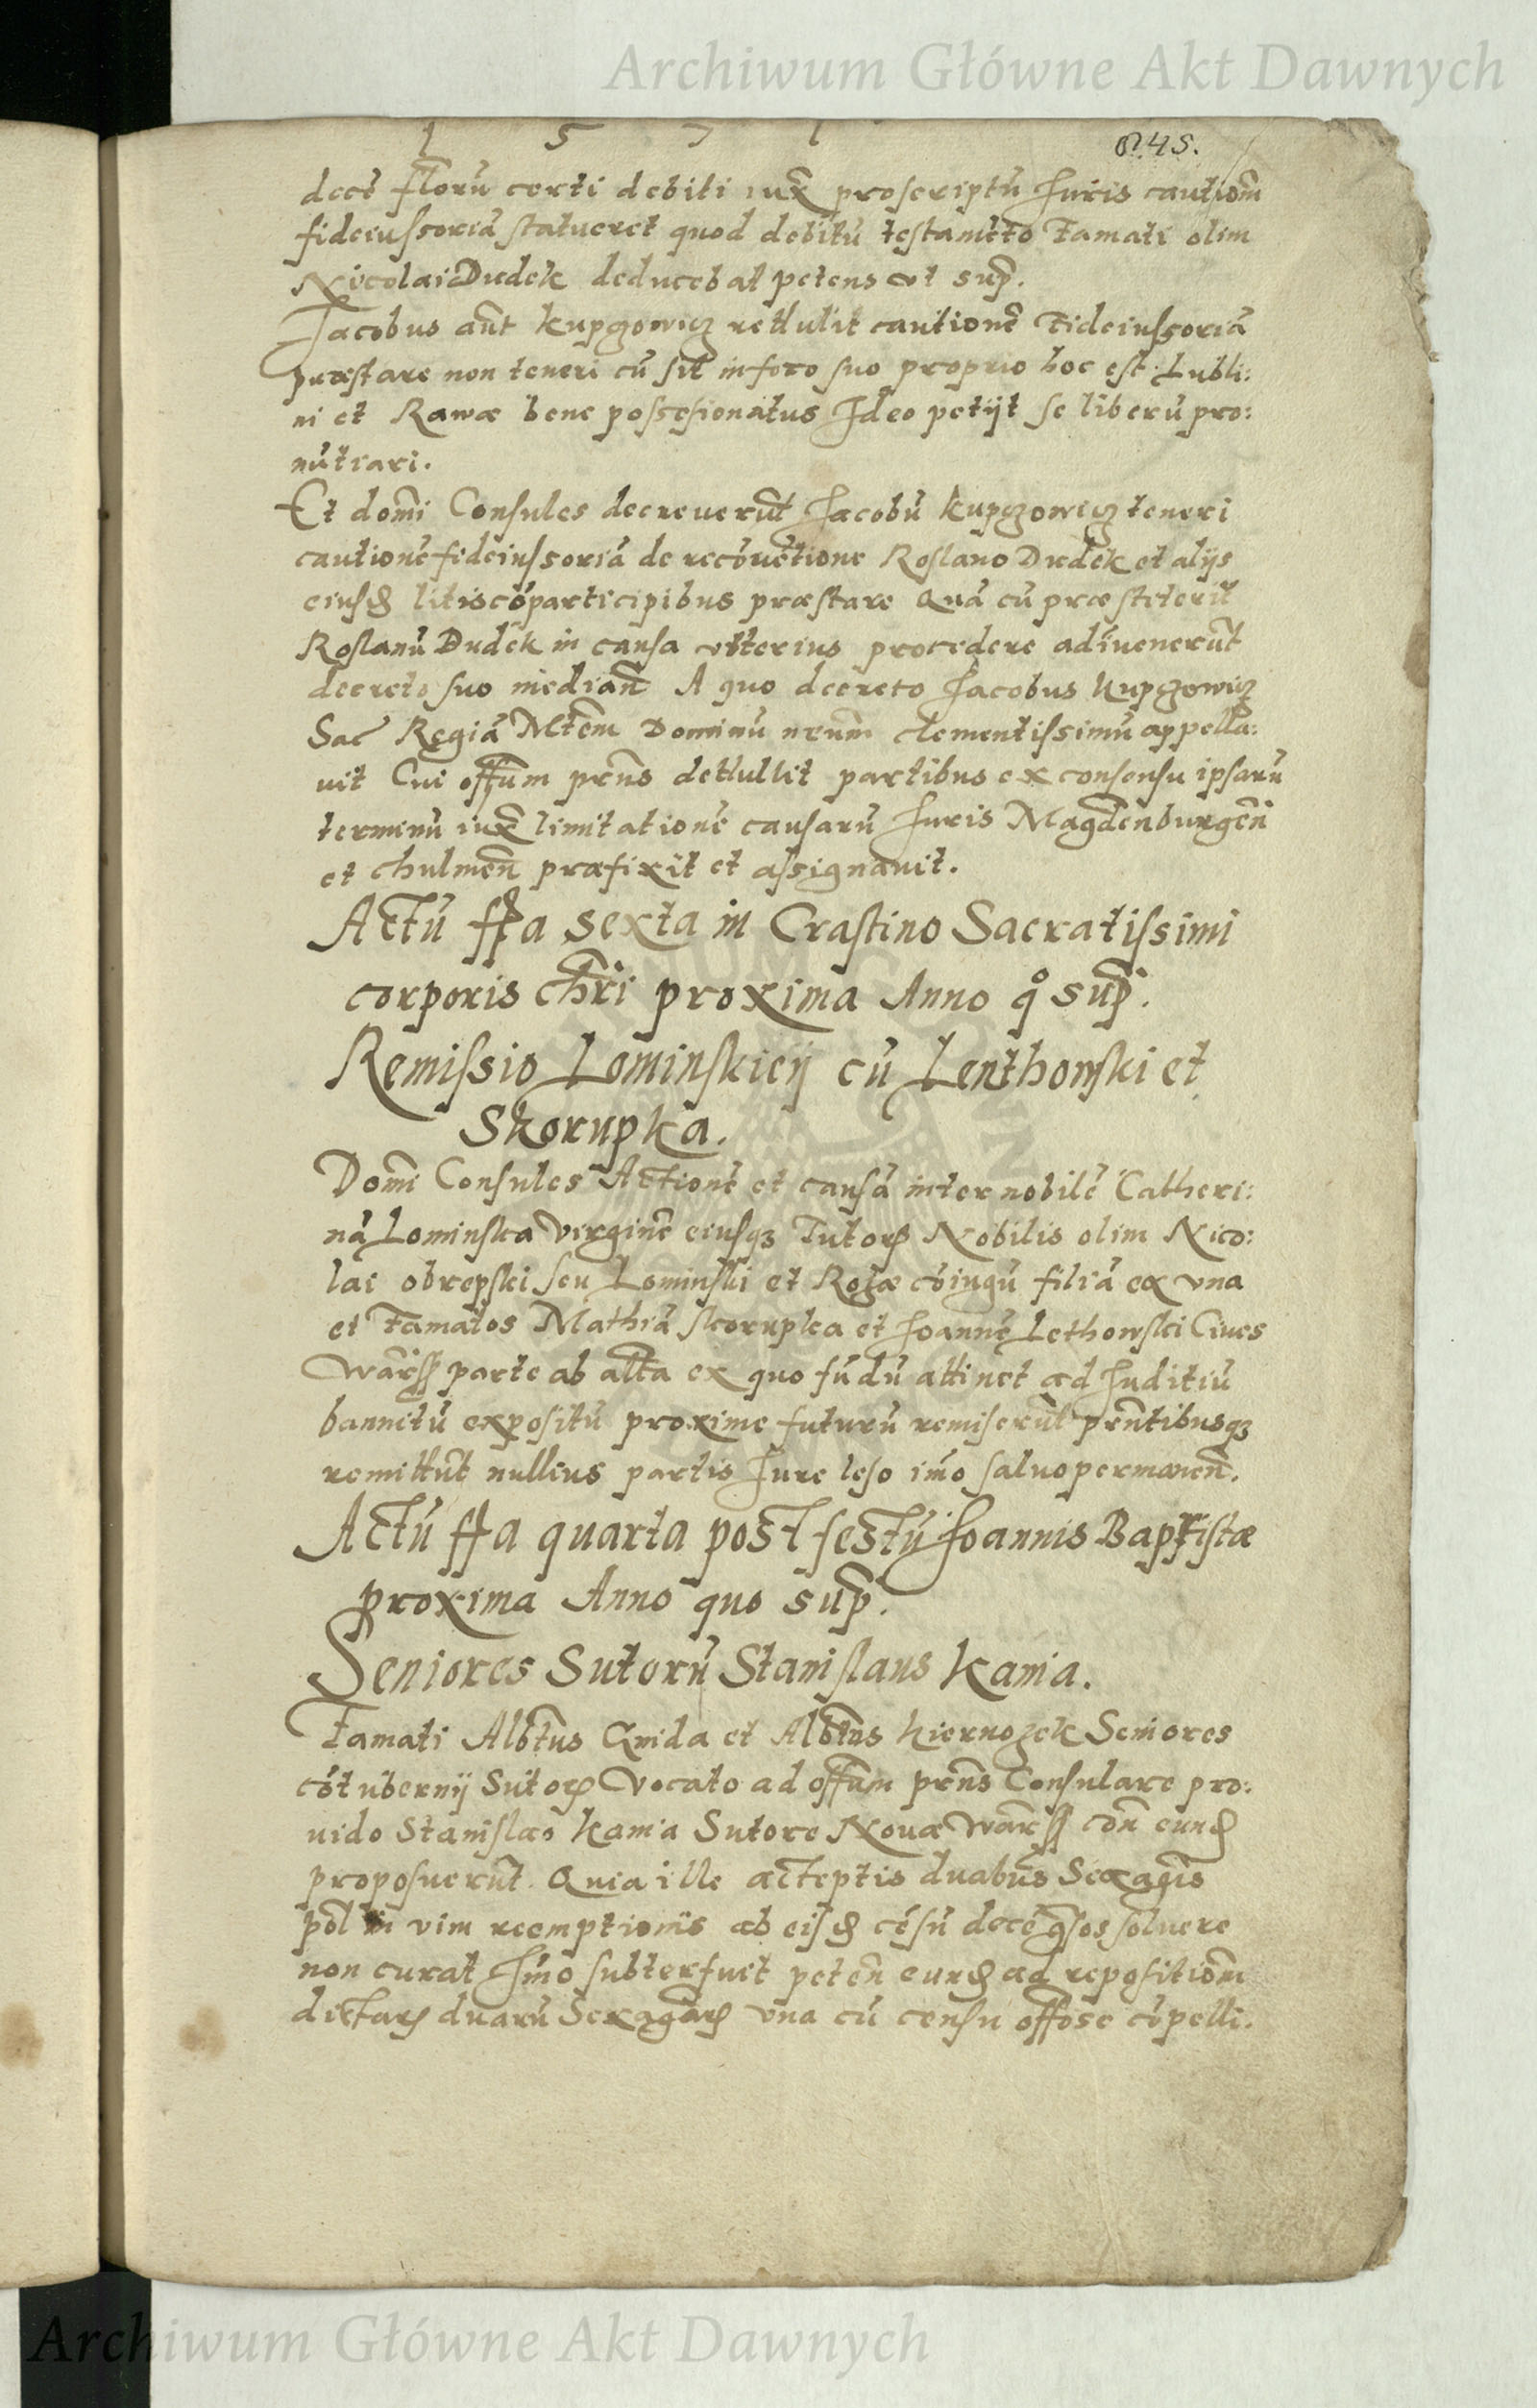 Archiwum Główne Akt Dawnych
1 5 7 1
245.
dect florū certi debiti iux̄ proscriptū Juris cautiōm
fideiussoriā statueret quod debitū testamēto Famati olim
Nicolai Dudek deducebat petens ut sup̄.
Jacobus aūt Kupczowicz rettulit cautionē Fideiussoriā
præstare non teneri cū sit in foro suo proprio hoc est Lubli:
ni et Rawæ bene possesionatus Ideo petijt se liberū pro:
nūtiari.
Et domī Consules decreverūt Jacobū Kupczowicz teneri
cautionē fideiussoriā de recōuētione Roslano Dudek et alijs
eiusd litiscōparticipibus præstare Quā cū præstiterit
Roslanū Dudek in causa ulterius procedere adīuenerūt
decreto suo median̄ A quo decreto Jacobus Kupczowicz
Sac Regiā Mtēm Dominū nrūm clementissimū appella:
uit Cui offūm prn̄s dettullit partibus ex consensu ipsarū
terminū iux̄ limitationē causarū Juris Magdenburgēn
et Chulmēn præfixit et assignauit.
Actū ffa sexta in Crastino Sacratissimi
corporis Chr̄i proxima Anno qº sup̄.
Remissio Lominskiey cū Lenthowski et
Skorupka.
Domī Consules Actionē et causā inter nobilē Catheri:
nā Lominska Virginē eiusqʒ Tutorꝝ Nobilis olim Nico:
lai obrepski seu Lominski et Rozæ cōiugū filiā ex una
et Famatos Mathiā skorupka et Joannē Lethowski Ciues
Warß parte ab altā ex quo fūdū attinet ad Juditiū
bannitū expositū proxime futurū remiserūt prn̄tibusqʒ
remittūt nullius partis Jure leso imō saluo permanen̄.
Actū ffa quarta post festū Joannis Baptistæ
proxima Anno quo sup̄.
Seniores Sutorū Stanislaus Kania.
Famati Albt̄us Gnida et Albt̄us Kiernozek Seniores
cōtubernij Sutorꝝ Vocato ad offūm prn̄s Consulare pro:
uido Stanislao Kania Sutore Nouæ Warß cōn eund
proposuerūt. Quia ille acceptis duabus Sexagēis
pol in vim reemptionis ab eisd cēsū decē gsos soluere
non curat Imō subterfuit petēn eund ad repositiōm
dictarꝝ duarū Sexagarꝝ una cū censu offōse cōpelli.
Archiwum Główne Akt Dawnych